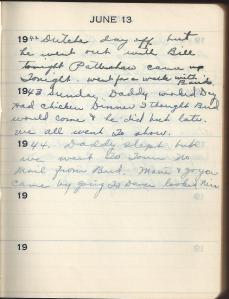 JUNE 13
1942 Dutch day off but
he went out with Bill
tonight came up
Tonight. went for a walk with
1943 Sunday, Daddy worked Day
Had chicken Dinner & thought Bud
would come & he did but late.
we all went to show.
1944. Daddy slept but
we went to Town no
Mail from Bud. Mom &
came by going to looked
19
19